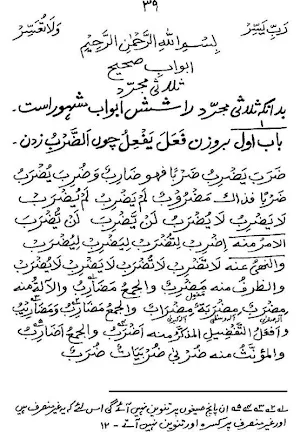 ۳۹
رَبِّ يَسِّرْ
وَلَا تُعَسِّرْ
بِسْمِ اللهِ الرَّحْمٰنِ الرَّحِيْمِ
ابواب صحیح
ثلاثی مجرّد
بدانکہ ثلاثی مجرّد را شش ابواب مشہور است۔
باب اول بروزن فَعَلَ يَفْعِلُ چوں اَلضَّرْبُ زدن۔
ضَرَبَ يَضْرِبُ ضَرْبًا فهو ضَارِبٌ وَضُرِبَ يُضْرَبُ
ضَرْبًا فذاك مَضْرُوْبٌ لَمْ يَضْرِبْ لَمْ يُضْرَبْ
لَا يَضْرِبُ لَا يُضْرَبُ لَنْ يَّضْرِبَ لَنْ يُّضْرَبَ
الامر منه اِضْرِبْ لِتُضْرَبْ لِيَضْرِبْ لِيُضْرَبْ
والنهي عنه لَا تَضْرِبْ لَا تُضْرَبْ لَا يَضْرِبْ لَا يُضْرَبْ
والظرف منه مَضْرِبٌ والجمع مَضَارِبُ والآلة منه
مِضْرَبٌ مِضْرَبَةٌ مِضْرَابٌ والجمع مَضَارِبُ وَمَضَارِيْبُ
وافعل التفضيل المذكر منه اَضْرَبُ والجمع اَضَارِبُ
والمؤنث منه ضُرْبٰى ضُرْبَيَاتٌ ضُرَبٌ
ان پانچ صیغوں پر تنوین نہیں آئے گی اس لئے کہ یہ غیر منصرف ہیں
اور غیر منصرف پر کسرہ اور تنوین نہیں آتے - ۱۲